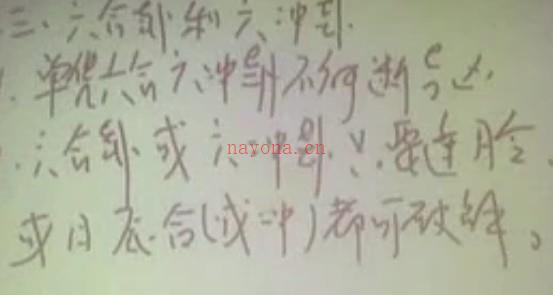 三、六合卦和六冲卦
单凭六合六冲卦不何断吉凶
六合卦或六冲卦,只要逢月令
nayona.cn
或日辰合(或冲)都可破解。